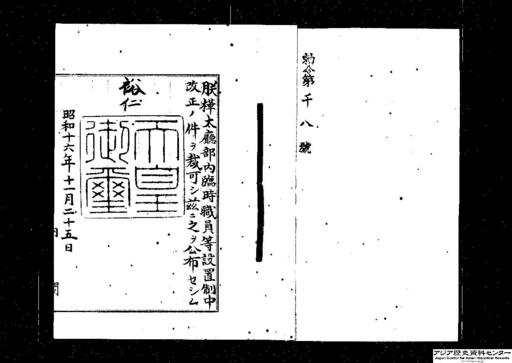 勅令第千八號
朕樺太廳部內臨時職員等設置制中
改正ノ件ヲ裁可シ茲ニ之ヲ公布セシム
裕仁
天皇御璽
昭和十六年十一月二十五日
アジア歴史資料センター
Japan Center for Asian Historical Records